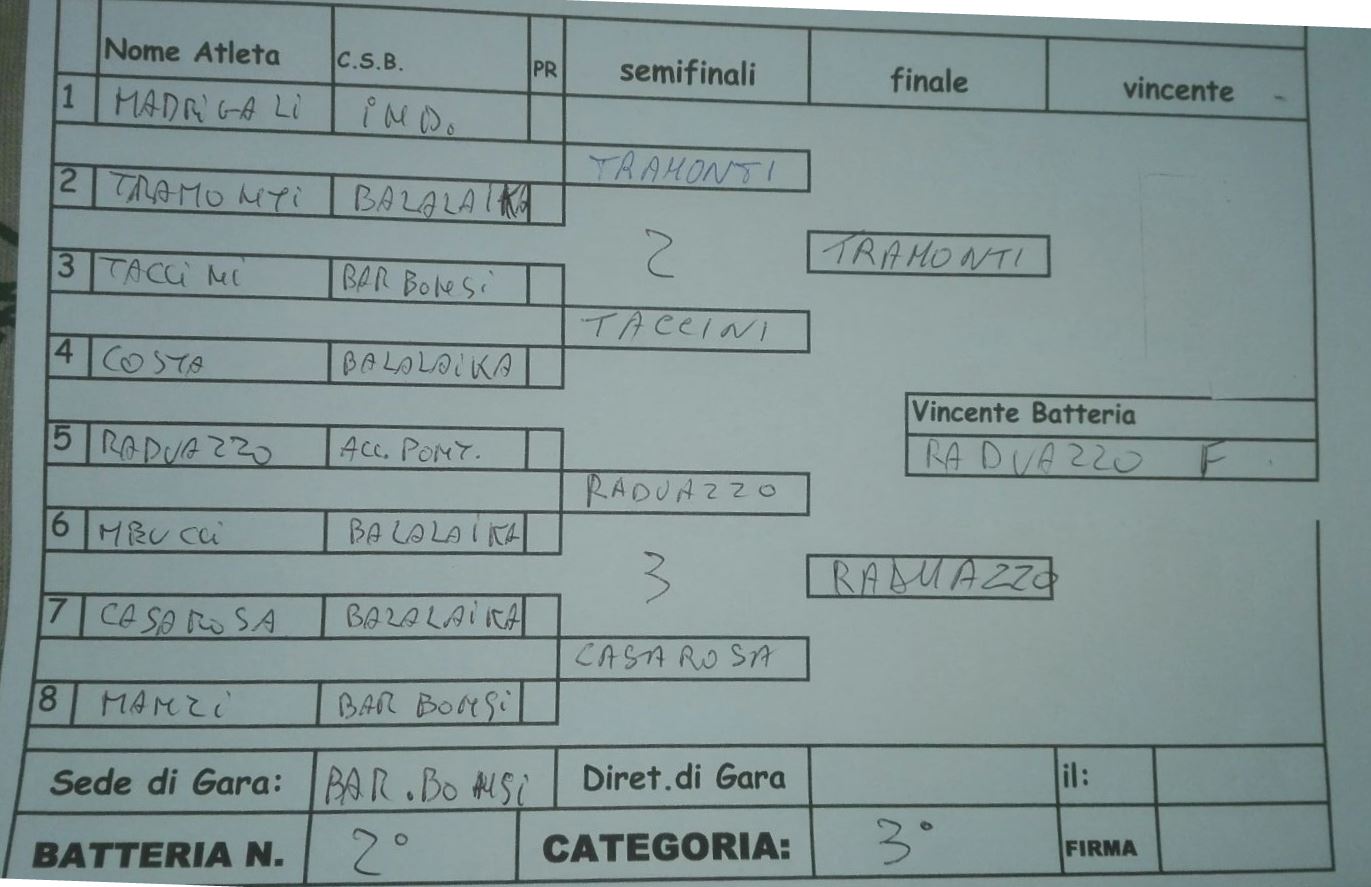 Nome Atleta C.S.B. PR semifinali finale vincente
1 MADRiGALi iND.
TRAMONTI
2 TRAMONTi BALALAIKA
2 TRAMONTI
3 TACCiNi BAR BONSi
TACCINI
4 COSTA BALALAiKA
Vincente Batteria
5 RADUAZZO ACC. PONT.
RADUAZZO F
RADUAZZO
6 BALALAiKA
3 RADUAZZO
7 CASAROSA BALALAiKA
CASAROSA
8 MANZi BAR BONSi
Sede di Gara: BAR.BONSi Diret.di Gara il:
BATTERIA N. 2° CATEGORIA: 3° FIRMA